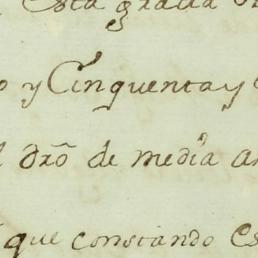 esta gracia
y Cinquenta y
dr̃o de media
que constando es